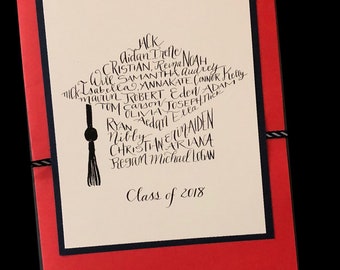 JACK
Aidan Irene
CRISTIAN, Reyna NOAH
Will SAMANTHA Audrey
NICK Isabella ANNAKATE, CONNOR Kelly
MARTIN ROBERT Eden ADAM
TOM Carson JOSEPH
OLIVIA
Adam Ella
RYAN
Nobby AIDEN
CHRISTIAN KIANA
Regan Michael LOGAN
Class of 2018